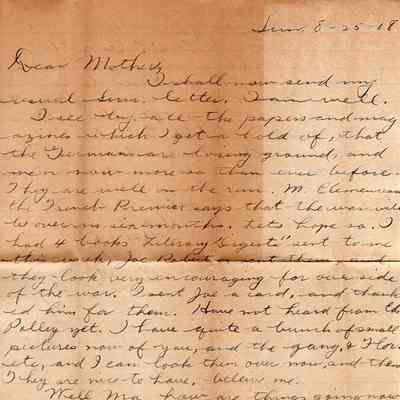 Sun. 8-25-18
Dear Mother,
I shall now send my
usual Sun. letter. I am well.
I see by all the papers and mag
azines which I get a hold of, that
the Germans are losing ground, and
now more so than ever before.
They are well on the run. M. Clemenceau
the French Premier says that the war will
be over in six months. Lets hope so. I
had 4 books "Literary Digests" sent to me
this week, Joe sent them and
they look very encouraging for our side
of the war. I sent Joe a card, and thank
ed him for them. Have not heard from the
Polley yet. I have quite a bunch of small
pictures now of you, and the gang, & Flor
etc, and I can look them over now, and then
They are nice to have, believe me.
Well Ma, how are things going now